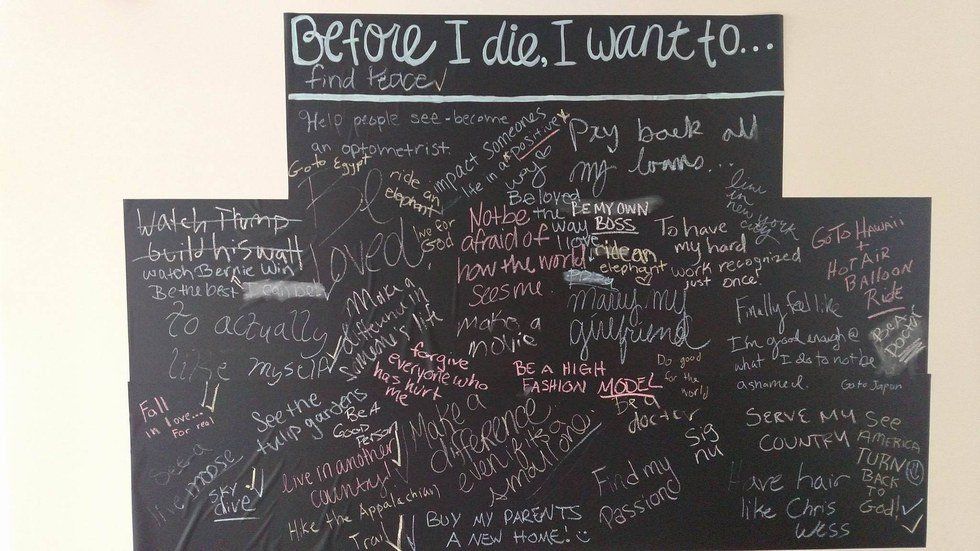 Before I die, I want to...
find peace
Help people see - become
an optometrist
Go to Egypt
ride an
elephant
impact someones
life in a positive
way
Pay back all
my loans...
live in
new york
city
Be
loved!
live for
God
Beloved
the
way
I love
Not be
afraid of
how the world
sees me
BE MY OWN
BOSS
ride an
elephant
To have
my hard
work recognized
just once!
GO TO HAWAII
+
HOT AIR
BALLOON
RIDE
Watch Trump
build his wall
watch Bernie win
Be the best
to actually
like myself
Make a
different in
someone's life
Make a
movie
marry my
girlfriend
Finally feel like
I'm good enough @
what I do to not be
ashamed.
Be A
Doctor
Go to Japan
forgive
everyone who
has hurt
me
BE A HIGH
FASHION MODEL
Do good
for the
world
be a
doctor
Fall
in love...
For real
See the
tulip gardens
BE A
GOOD
PERSON
Make a
difference
even if it's a
small one.
sig
nu
SERVE MY
COUNTRY
SEE
AMERICA
TURN
BACK
TO
GOD!
See a
live moose
sky
dive
live in another
country!
Hike the Appalachian
Trail
BUY MY PARENTS
A NEW HOME!
Find my
passion
Have hair
like Chris
Wess